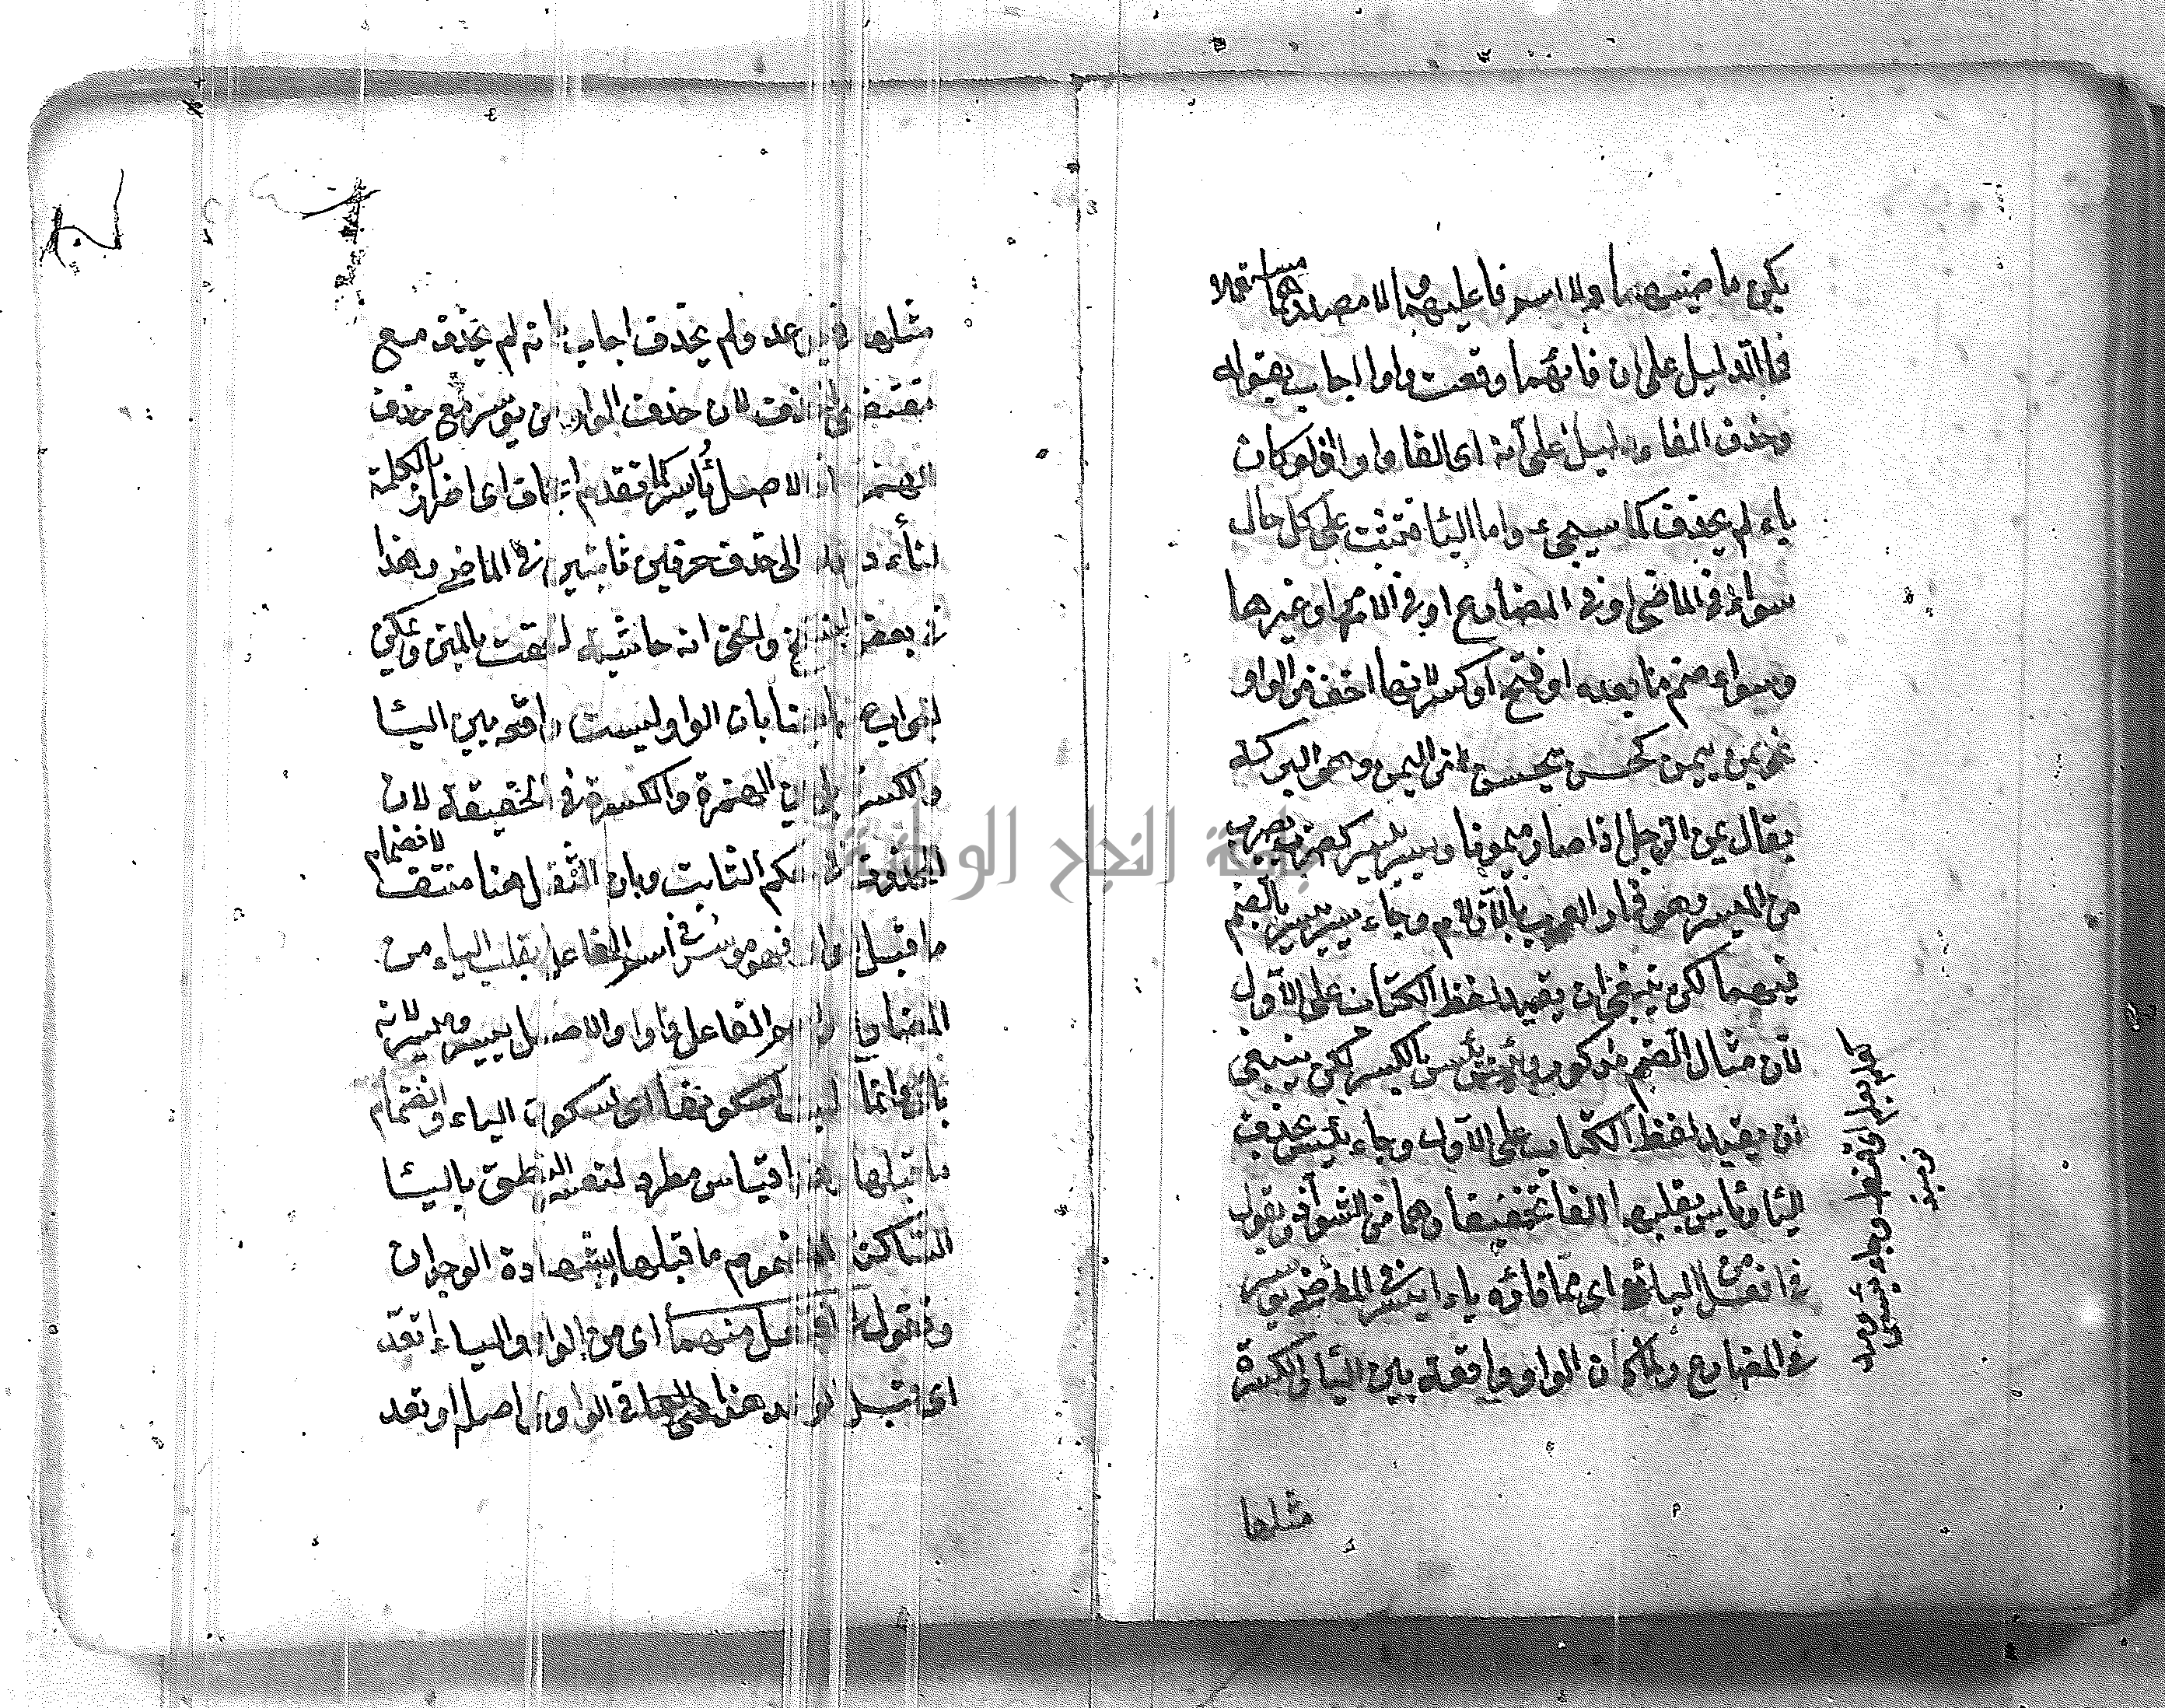 يكن ماضيهما ولا اسم فاعليهما ولا مصدرهما مستعملا
فما الدليل على ان فائهما وقعت واوا اجاب بقوله
وحذف الفاء دليل على انه اى الفا واو اذ لو كان
ياء لم يحذف كما سيجىء واما اليا فتثبت على كل حال
سواء فى الماضى او فى المضارع او فى الامر او غيرها
وسواء ضم ما بعده او فتح او كسر لانها اخف من الواو
نحو يمن ييمن كحسن يحسن من اليمن وهو البركة
يقال يمن الرجل اذا صار ميمونا ويسر ييسر كضرب يضرب
من الميسر وهو قمار العرب بالازلام وجاء يسر ييسر بالضم
فيهما لكن ينبغى ان يقيد لفظ الكتاب على الاول
لان مثال الضم مذكور ويئس ييئس بالكسر لكن ينبغى
ان يقيد لفظ الكتاب على الاول وجاء يئس بحذف
اليا ويائس بقلبها الفا تخفيفا وهما من الشواذ ويقول
فى افعل من اليائى اى مما فاؤه ياء ايسر فى الماضى يوسر
فى المضارع ولما كان الواو واقعة بين اليا والكسرة
مثلها
مثلها فى يوعد ولم يحذف اجاب بانه لم يحذف مع
مقتضى الحذف لان حذف الواو من يوسر مع حذف
الهمزة اذ الاصل يأيسر كما تقدم اجحاف اى اضرار بالكلمة
لتأديته الى حذف حرفين ثابتين فى الماضى وهذا
فى بعض النسخ والحق انه حاشية لحقت بالمتن ويمكن
الجواب ايضا بان الواو ليست واقعة بين اليا
والكسرة بل بين الهمزة والكسرة فى الحقيقة لان
المحذوف فى حكم الثابت وبان الثقل هنا منتف لانضمام
ما قبل الواو فهو موسر فى اسم الفاعل بقلب الياء من
المضارع واسم الفاعل واوا والاصل ييسر وميسر لانه
يائى وانما قلبت لسكونها اى لسكون الياء وانضمام
ما قبلها وهذا قياس مطرد لتعسر النطق باليا
الساكن المضموم ما قبلها بشهادة الوجدان
وتقول فى افتعل منهما اى من الواو والياء اتعد
اى قبل الوعد هذا فى الواو اصل اوتعد